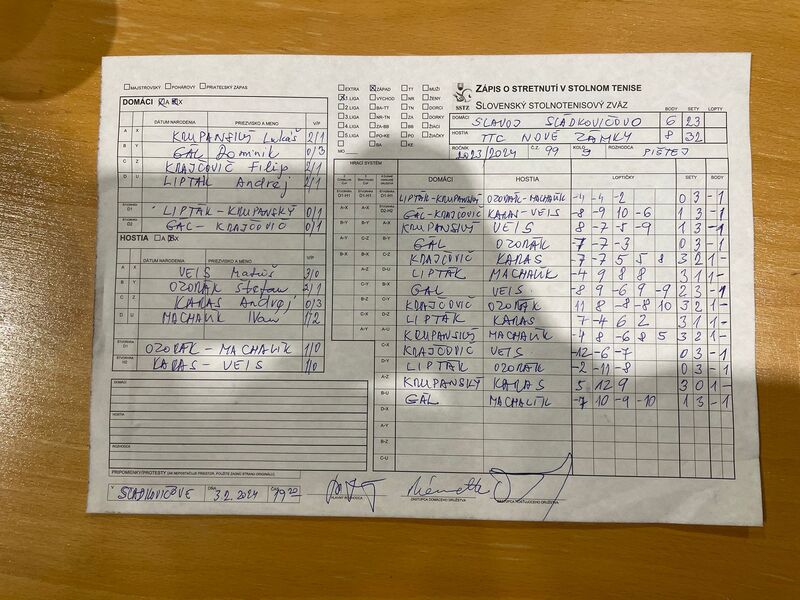 MAJSTROVSKÝ POHÁROVÝ PRIATEĽSKÝ ZÁPAS
DOMÁCI A X
DÁTUM NARODENIA PRIEZVISKO A MENO V/P
A X KRUPANSKÝ Lukáš 2/1
B Y GÁL Dominik 0/3
C Z KRAJČOVIČ Filip 2/1
D U LIPTÁK Andrej 2/1
ŠTVORHRA D1 LIPTÁK - KRUPANSKÝ 0/1
ŠTVORHRA D2 GÁL - KRAJČOVIČ 0/1
HOSTIA A X
DÁTUM NARODENIA PRIEZVISKO A MENO V/P
A X VEIS Matúš 3/0
B Y OZORÁK Štefan 2/1
C Z KARAS Andrej 0/3
D U MACHALÍK Ivan 1/2
ŠTVORHRA OZORÁK - MACHALÍK 1/0
ŠTVORHRA H2 KARAS - VEIS 1/0
DOMÁCI
HOSTIA
ROZHODCA
PRIPOMIENKY/PROTESTY
V SLADKOVIČOVE DŇA 3.2.2024 ČAS 19 20
HLAVNÝ ROZHODCA ZÁSTUPCA DOMÁCEHO DRUŽSTVA ZÁSTUPCA HOSŤUJÚCEHO DRUŽSTVA
EXTRA ZÁPAD TT MUŽI
1 LIGA VÝCHOD NR ŽENY
2. LIGA BA-TT TN DORCI
3. LIGA NR-TN ZA DORKY
4. LIGA ZA-BB BB ŽIACI
5. LIGA PO-KE PO ŽIAČKY
MO BA KE
SSTZ
ZÁPIS O STRETNUTÍ V STOLNOM TENISE
SLOVENSKÝ STOLNOTENISOVÝ ZVÄZ
BODY SETY LOPTY
DOMÁCI SLAVOJ SLÁDKOVIČOVO 6 23
HOSTIA TTC NOVÉ ZÁMKY 8 32
ROČNÍK 2023/2024 Č.Z. 99 KOLO 9 ROZHODCA PIŠTEJ
HRACÍ SYSTÉM
DOMÁCI HOSTIA LOPTIČKY SETY BODY
LIPTÁK-KRUPANSKÝ OZORÁK-MACHALÍK -4 -4 -2 0 3 - 1
GÁL-KRAJČOVIČ KARAS-VEIS -8 -9 10 -6 1 3 - 1
KRUPANSKÝ VEIS 8 -7 -5 -9 1 3 - 1
GÁL OZORÁK -7 -7 -3 0 3 - 1
KRAJČOVIČ KARAS -7 -7 5 5 8 3 2 1 -
LIPTÁK MACHALÍK -4 9 8 8 3 1 1 -
GÁL VEIS -8 9 -6 9 -9 2 3 - 1
KRAJČOVIČ OZORÁK 11 8 -8 -8 10 3 2 1 -
LIPTÁK KARAS 7 -4 6 2 3 1 1 -
KRUPANSKÝ MACHALÍK -4 8 -6 8 5 3 2 1 -
KRAJČOVIČ VEIS -12 -6 -7 0 3 - 1
LIPTÁK OZORÁK -2 -11 -8 0 3 - 1
KRUPANSKÝ KARAS 5 12 9 3 0 1 -
GÁL MACHALÍK -7 10 -9 -10 1 3 - 1